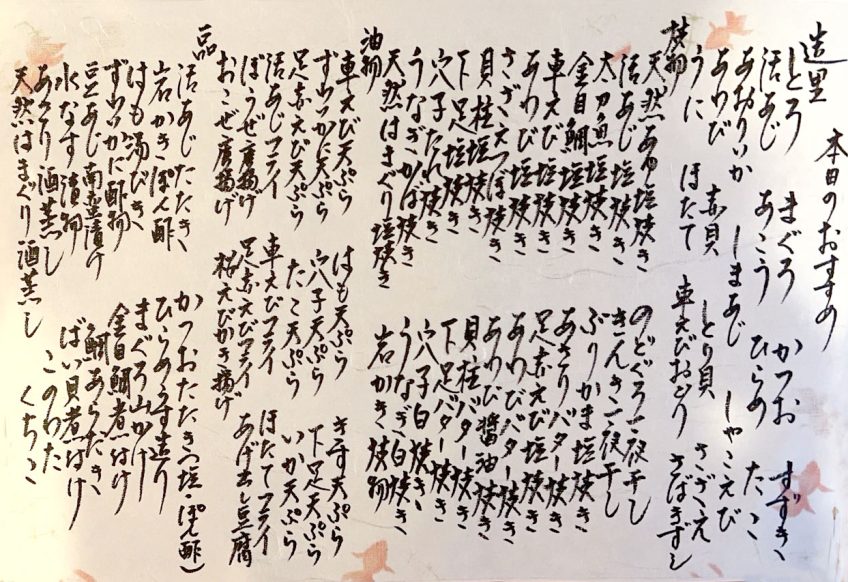 本日のおすすめ
造里
とろ まぐろ かつお すずき
活あじ あこう ひらめ たこ
あおりいか しまあじ しゃこえび
あわび 赤貝 とり貝 さざえ
うに ほたて 車えびおどり さばきずし
焼物
天然あゆ塩焼き のどぐろ一夜干し
活あじ塩焼き きんき一夜干し
太刀魚塩焼き ぶりかま塩焼き
金目鯛塩焼き あさりバター焼き
車えび塩焼き 足赤えび塩焼き
あわび塩焼き あわびバター焼き
さざえつぼ焼き あわび醤油焼き
貝柱塩焼き 貝柱バター焼き
下足塩焼き 下足バター焼き
穴子たれ焼き 穴子白焼き
うなぎかば焼き うなぎ白焼き
天然はまぐり塩焼き 岩かき焼物
油物
車えび天ぷら はも天ぷら きす天ぷら
ずわいかに天ぷら 穴子天ぷら 下足天ぷら
足赤えび天ぷら たこ天ぷら いか天ぷら
活あじフライ 車えびフライ ほたてフライ
ぼうぜ唐揚げ 足赤えびフライ あげ出し豆腐
おこぜ唐揚げ 桜えびかき揚げ
一品
活あじたたき かつおたたき(塩・ぽん酢)
岩かきぽん酢 ひらめうす造り
はも湯びき まぐろ山かけ
ずわいかに酢物 金目鯛煮付け
豆あじ南蛮漬け 鯛あらだき
水なす漬物 ばい貝煮付け
あさり酒蒸し このわた
天然はまぐり酒蒸し くちこ